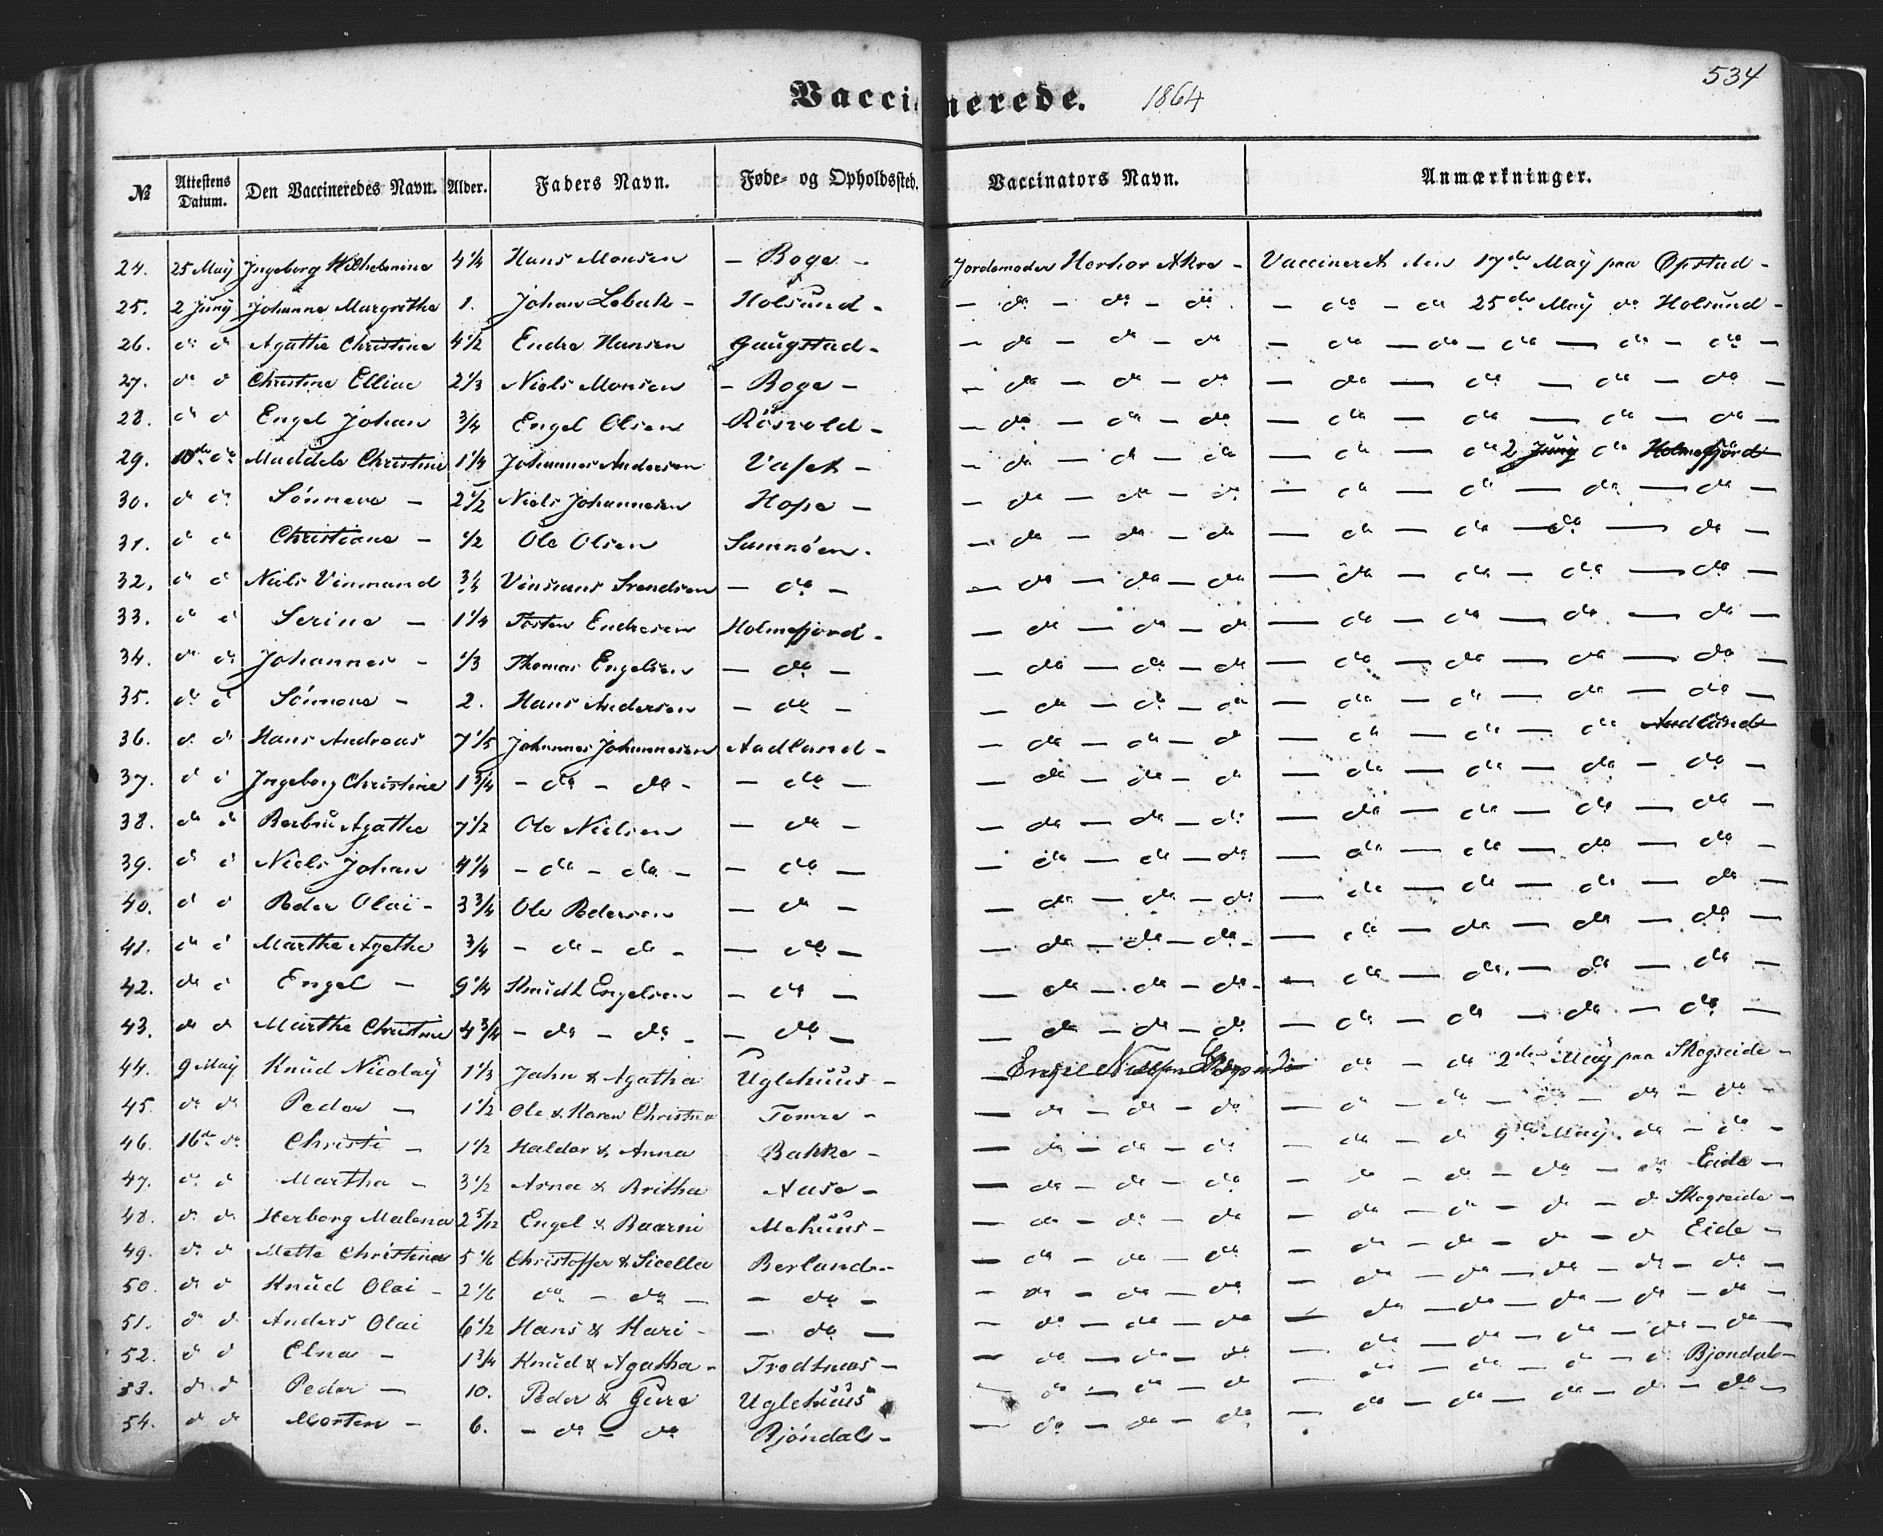 534
Vaccinerede. 1864
№ Attestens Datum. Den Vaccineredes Navn. Alder. Faders Navn. Føde- og Opholdssted. Vaccinators Navn. Anmærkninger.
24. 25 May Ingeborg Wilhelmine 4 1/4 Hans Monsen – Boge – Jordemoder Herbor Akre – Vaccineret den 17de May paa Øpstad –
25. 2 Juny Johanne Margrethe 1. Johan Lebak – Holsund – – do – do – do – do – do 25de May do Holsund –
26. do do Agathe Christine 4 1/2 Endre Hansen Gaugstad – – do – do – do – do – do – do – do – do –
27. do do Christine Elliae 2 1/3 Niels Monsen – Boge – – do – do – do – do – do – do – do
28. do do Engel Johan 3/4 Engel Olsen Rösvold – – do – do – do – do – do – do – do
29. 10de do Christine 1 1/4 Johannes Andersen Vaset – – do – do – do – do – do 2 Juny do Holmefjord
30. do do Sönneva – 2 1/2 Niels Johannesen Hope – – do – do – do – do – do – do – do –
31. do do Christiane – 1/2 Ole Olsen Sumnöen – – do – do – do – do – do – do – do –
32. do do Niels Vinmand 3/4 Svendsen – do – – do – do – do – do – do – do – do –
33. do do Serine – 1 1/4 Tosten Endresen Holmefjord – – do – do – do – do – do – do – do –
34. do do Johannes – 1/3 Thomas Engelsen – do – – do – do – do – do – do – do – do –
35. do do Sönneva – 2. Hans Andersen – do – – do – do – do – do – do – do – do –
36. do do Hans Andreas 7 1/5 Johannes Johannesen Aadland – – do – do – do – do – do – do Aadland
37. do do Ingeborg Christine 1 3/4 – do – do – – do – – do – do – do – do – do – do – do –
38. do do Berbru Agathe 7 1/2 Ole Nielsen – do – – do – do – do – do – do – do – do –
39. do do Niels Johan 4 1/4 – do – do – – do – – do – do – do – do – do – do – do –
40. do do Peder Olai – 3 3/4 Ole Pedersen – do – – do – do – do – do – do – do – do –
41. do do Marthe Agathe 3/4 – do – do – – do – – do – do – do – do – do – do – do –
42. do do Engel – 9 1/4 Knudt Engelsen – do – – do – do – do – do – do – do – do –
43. do do Marthe Christine 4 3/4 – do – do – – do – – do – do – do – do – do – do – do –
44. 9 May Knud Nicolay 1 1/3 Jahn & Agatha Uglehuus – Engel Nielsen do – do 2den May paa Skogseide –
45. do do Peder – 1 1/2 Ole & Karen Christina Tomre – – do – do – do – do – do – do – do – do –
46. 16de do Christi – 1 1/2 Haldor & Anna Bakke – – do – do – do – do – do 9de May do – do –
47. do do Martha – 3 1/2 Arna & Britha Aase – – do – do – do – do – do – do – do Eide –
48. do do Herborg Malena 2 5/12 Engel & Baarni Mehuus – – do – do – do – do – do – do – do Skogseide –
49. do do Mette Christina 5 1/6 Christoffer & Sicella Berland – – do – do – do – do – do – do – do Eide –
50. do do Knud Olai – 2 1/6 do – do – – do – – do – do – do – do – do – do – do – do –
51. do do Anders Olai 6 1/2 Hans & Kari – – do – – do – do – do – do – do – do – do – do –
52. do do Elna – 1 3/4 Knud & Agatha – Tredtnæs – – do – do – do – do – do – do – do – do –
53. do do Peder – 10. Peder & Gura Uglehuus – do – do – do – do – do – do – do Bjondal –
54. do do Morten – 6. – do – do Bjöndal – – do – do – do – do – do – do – do – do –